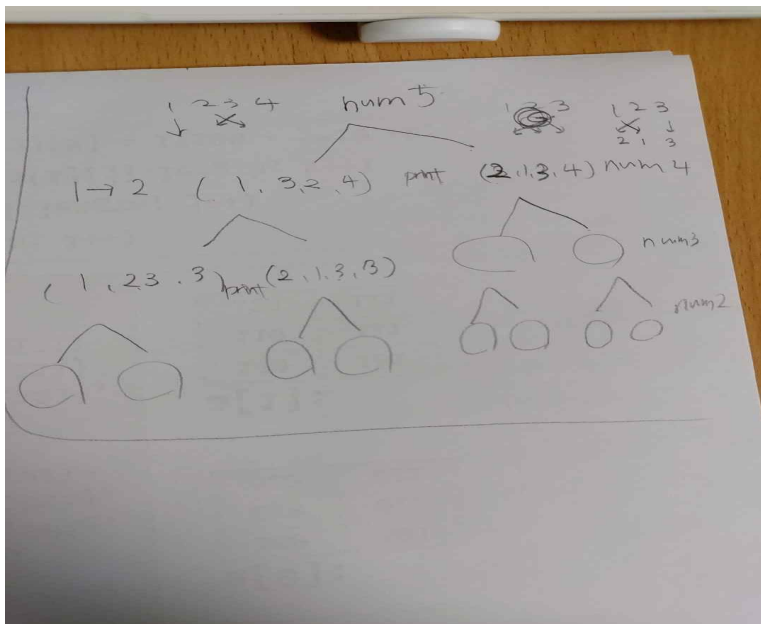 1 2 3 4 num 5 1 3 1 2 3
2 1 3
1 → 2 ( 1, 3, 2, 4) print (2, 1, 3, 4) num 4
num3
( 1, 23, 3) print (2, 1, 3, 3)
num2